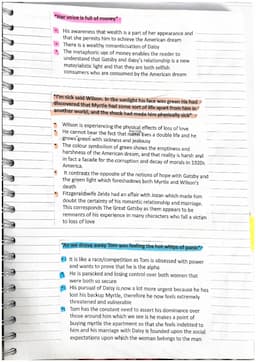 "Her voice is full of money"
His awareness that wealth is a part of her appearance and
that she permits him to achieve the American dream
There is a wealthy romanticisation of Daisy
The metaphoric use of money enables the reader to
understand that Gatsby and daisy's relationship is a new
materialistic light and that they are both selfish
consumers who are consumed by the American dream
"I'm sick said Wilson. In the sunlight his face was green He had
discovered that Myrtle had some sort of life apart from him in
another world, and the shock had made him physically sick".
Wilson is experiencing the physical effects of loss of love
He cannot bear the fact that lives a double life and he
grows green with sickness and jealousy
The colour symbolism of green shows the emptiness and
harshness of the American dream, and that reality is harsh and
in fact a facade for the corruption and decay of morals in 1920s
America.
It contrasts the opposite of the notions of hope with Gatsby and
the green light which foreshadows both Myrtle and Wilson's
death
Fitzgeraldwife Zelda had an affair with Jozan which made him
doubt the certainty of his romantic relationship and marriage.
This corresponds The Great Gatsby as them appears to be
remnants of his experience in many characters who fall a victim
to loss of love
"As we drove away Tom was feeling the hot whips of panic"
It is like a race/competition as Tom is obsessed with power
and wants to prove that he is the alpha
He is panicked and losing control over both women that
were both so secure
His pursuit of Daisy is now a lot more urgent because he has
lost his backup Myrtle, therefore he now feels extremely
threatened and vulnerable
Tom has the constant need to assert his dominance over
those around him which we see is he makes a point of
buying myrtle the apartment so that she feels indebted to
him and his marriage with Daisy is founded upon the social
expectations upon which the woman belongs to the man